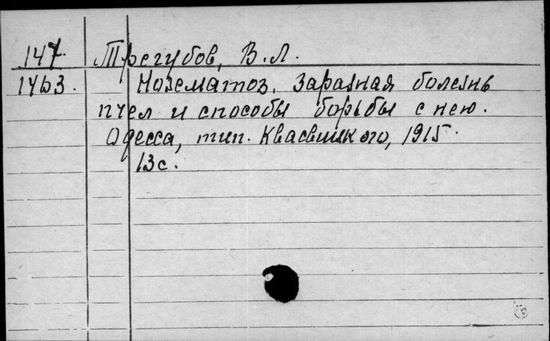 147. Трегубов, В.Л.
1463. Нозематоз. Заразная болезнь
пчел и способы борьбы с нею.
Одесса, тип. Квасвицкого, 1915.
13с.